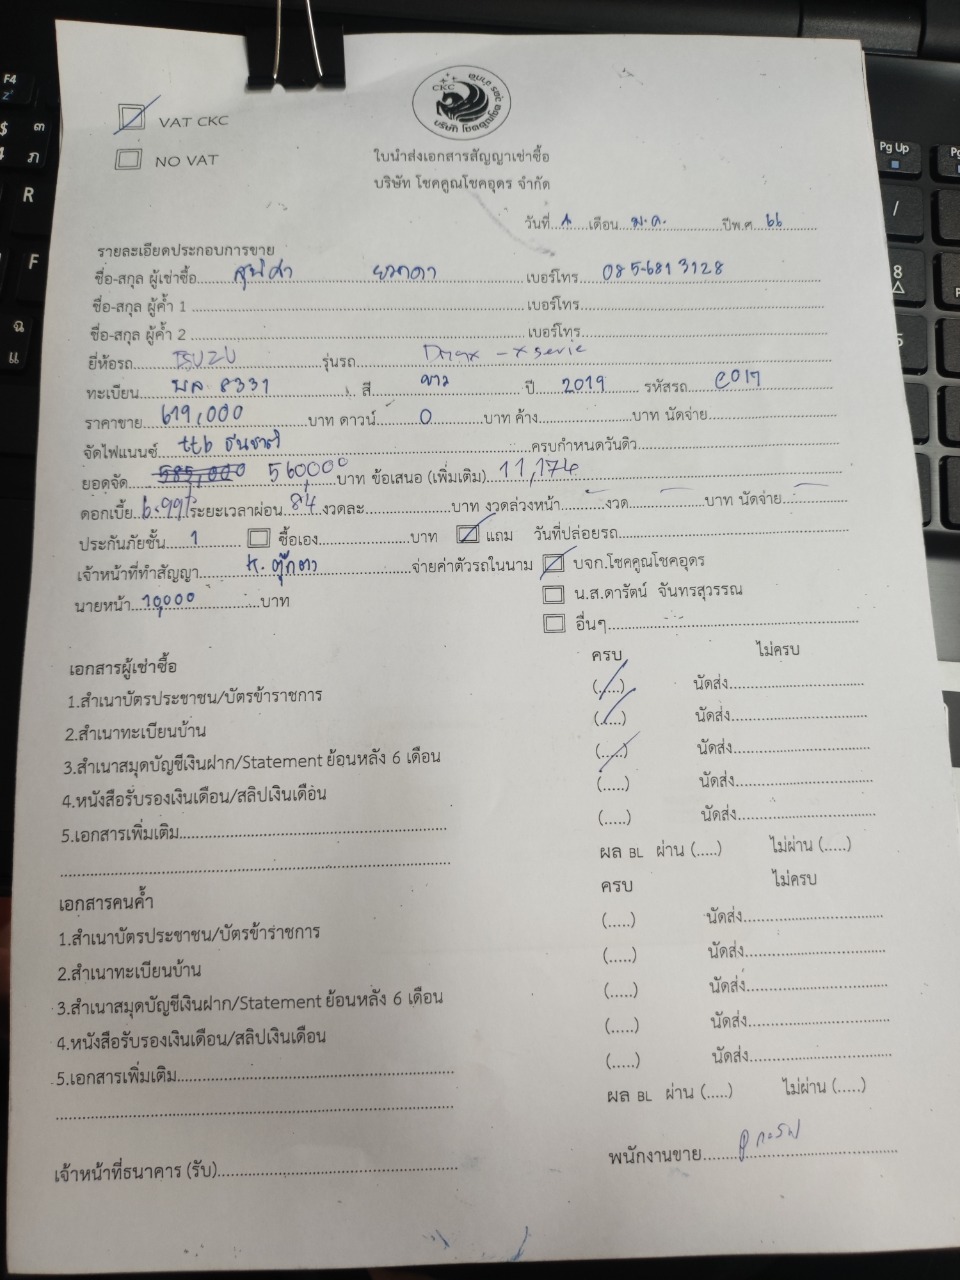 CKC
บริษัท โชคคูณโชคอุดร
VAT CKC
NO VAT
ใบนำส่งเอกสารสัญญาเช่าซื้อ
บริษัท โชคคูณโชคอุดร จำกัด
วันที่........เดือน ม.ค. ปีพ.ศ. 66
รายละเอียดประกอบการขาย
ชื่อ-สกุล ผู้เช่าซื้อ สุนิศา เบอร์โทร 085-6813128
ชื่อ-สกุล ผู้ค้ำ 1 เบอร์โทร
ชื่อ-สกุล ผู้ค้ำ 2 เบอร์โทร
ยี่ห้อรถ ISUZU รุ่นรถ Dmax - x serie
ทะเบียน ผล 8331 สี ขาว ปี 2019 รหัสรถ C017
ราคาขาย 619,000 บาท ดาวน์ 0 บาท ค้าง บาท นัดจ่าย
จัดไฟแนนซ์ ttb ธนชาต ครบกำหนดวันดิว
ยอดจัด 585,000 560,000 บาท ข้อเสนอ (เพิ่มเติม) 11,174
ดอกเบี้ย 6.99% ระยะเวลาผ่อน 84 งวดละ บาท งวดล่วงหน้า งวด บาท นัดจ่าย
ประกันภัยชั้น 1 ซื้อเอง บาท แถม วันที่ปล่อยรถ
เจ้าหน้าที่ทำสัญญา K. ตุ๊กตา จ่ายค่าตัวรถในนาม บจก.โชคคูณโชคอุดร
นายหน้า 10,000 บาท น.ส.ดารัตน์ จันทรสุวรรณ
อื่นๆ
เอกสารผู้เช่าซื้อ ครบ ไม่ครบ
1.สำเนาบัตรประชาชน/บัตรข้าราชการ (.....) นัดส่ง
2.สำเนาทะเบียนบ้าน (.....) นัดส่ง
3.สำเนาสมุดบัญชีเงินฝาก/Statement ย้อนหลัง 6 เดือน (.....) นัดส่ง
4.หนังสือรับรองเงินเดือน/สลิปเงินเดือน (.....) นัดส่ง
5.เอกสารเพิ่มเติม (.....) นัดส่ง
ผล BL ผ่าน (.....) ไม่ผ่าน (.....)
เอกสารคนค้ำ ครบ ไม่ครบ
1.สำเนาบัตรประชาชน/บัตรข้าราชการ (.....) นัดส่ง
2.สำเนาทะเบียนบ้าน (.....) นัดส่ง
3.สำเนาสมุดบัญชีเงินฝาก/Statement ย้อนหลัง 6 เดือน (.....) นัดส่ง
4.หนังสือรับรองเงินเดือน/สลิปเงินเดือน (.....) นัดส่ง
5.เอกสารเพิ่มเติม (.....) นัดส่ง
ผล BL ผ่าน (.....) ไม่ผ่าน (.....)
เจ้าหน้าที่ธนาคาร (รับ) พนักงานขาย